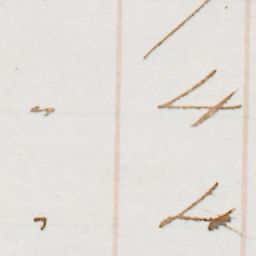 /
" 4
" 4